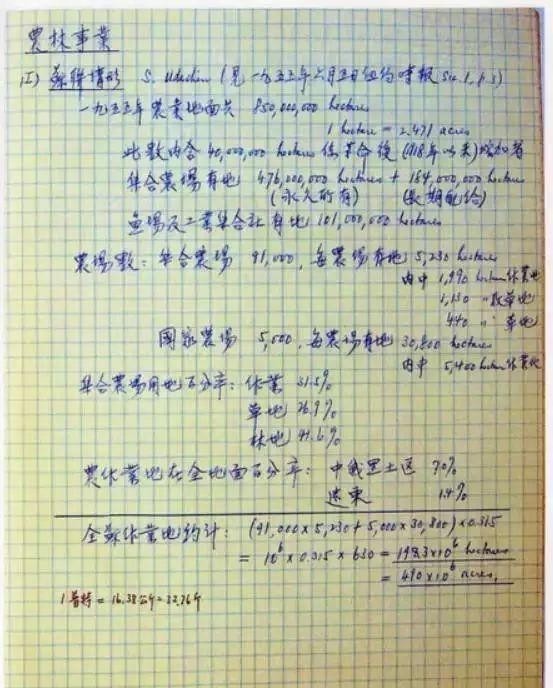 農林事業
(I) 蘇聯情形 S. (見一九五五年六月五日紐約時報 Sec. 1, p. 5)
一九五五年農業地面共 850,000,000 hectares
1 hectare = 2.471 acres
此數內含 40,000,000 hectares 係革命後 (1918年以來) 增加者
集合農場有地 476,000,000 hectares + 184,000,000 hectares
(永久所有) (長期配給)
漁場及工業集合社有地 101,000,000 hectares
農場數: 集合農場 91,000, 每農場有地 5,230 hectares
內中 1,990 hectares 作業地
1,130 " 草地
440 " 草地
國家農場 5,000, 每農場有地 30,800 hectares
內中 5,400 hectares 作業地
集合農場用地百分率: 作業 31.5%
草地 26.9%
林地 41.6%
農作業地在全地面百分率: 中俄黑土區 70%
遠東 1.4%
全蘇作業地約計: (91,000 x 5,230 + 5,000 x 30,800) x 0.315
= 10⁶ x 0.315 x 630 = 198.3 x 10⁶ hectares
= 490 x 10⁶ acres.
1 普特 = 16.38 公斤 = 32.76 斤